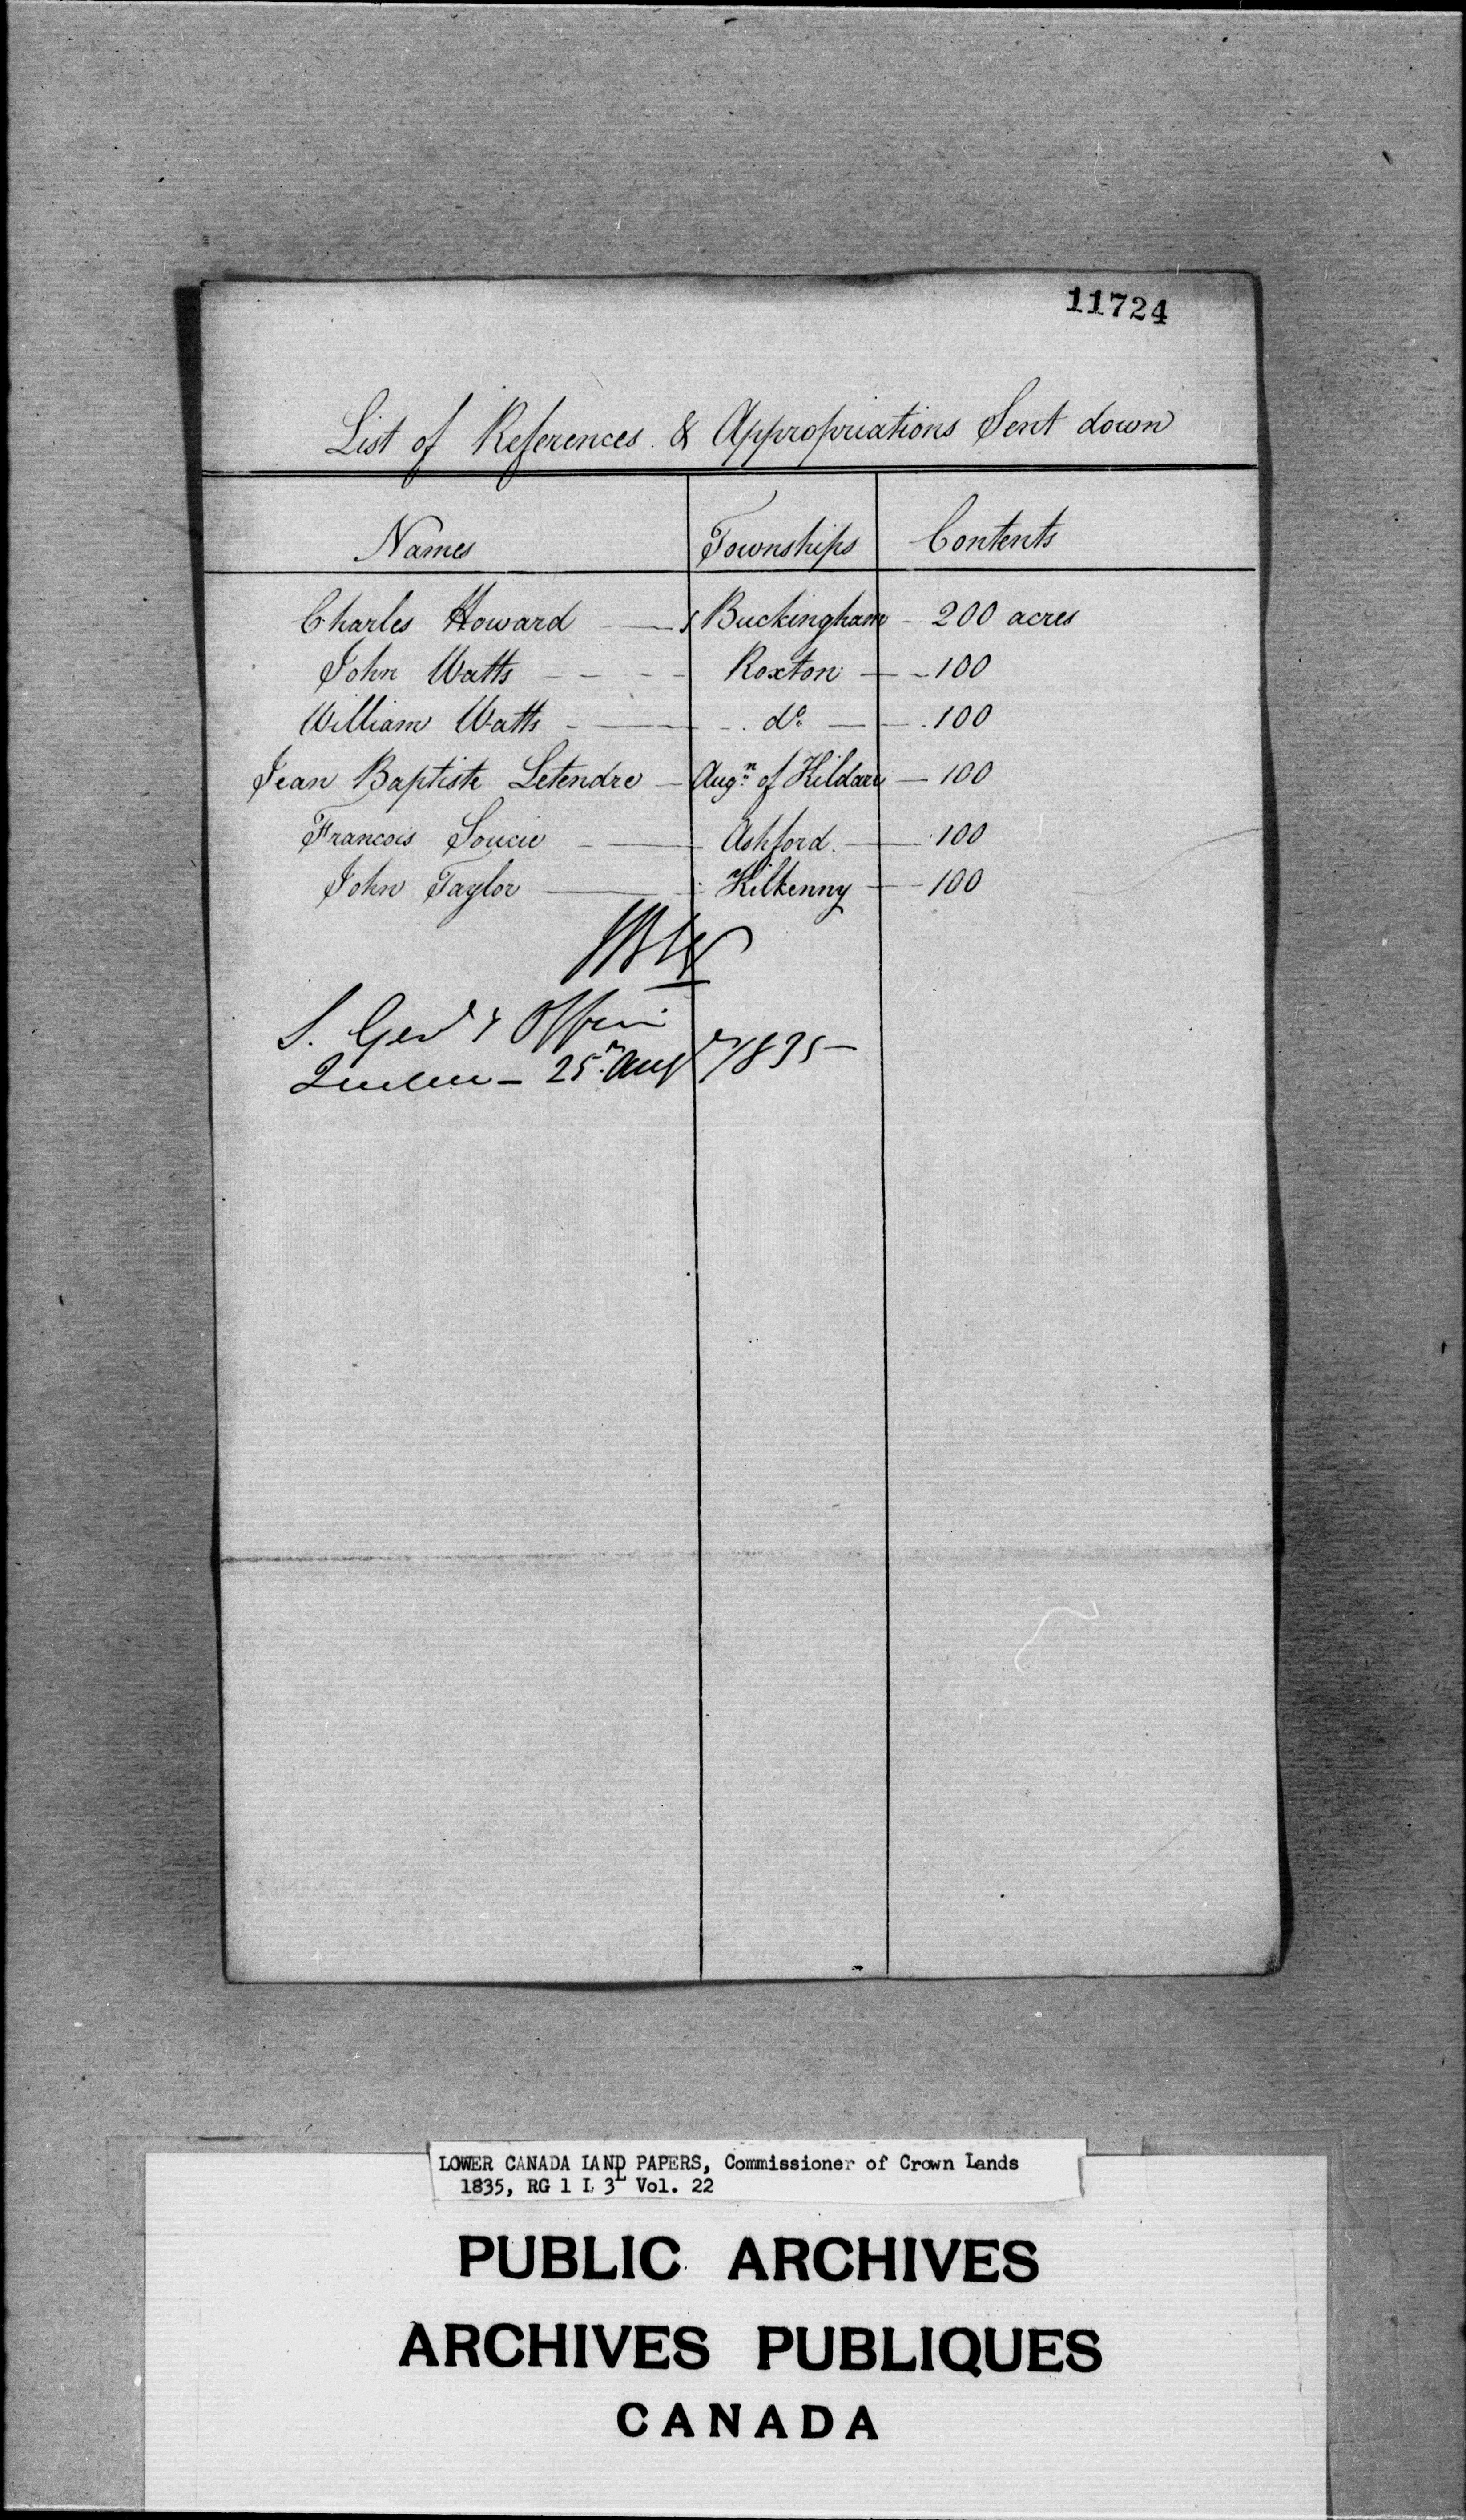 11724
List of References & Appropriations Sent down
Names Townships Contents
Charles Howard Buckingham - 200 acres
John Watts - - - - Roxton - 100
William Watts - do - 100
Jean Baptiste Letendre - Augn of Kildare - 100
Francois Soucie - Ashford. - 100
John Taylor - Kilkenny - 100
S. Genl's Office
Quebec - 25th Augt 1835 -
LOWER CANADA LAND PAPERS, Commissioner of Crown Lands
1835, RG 1 L 3L Vol. 22
PUBLIC ARCHIVES
ARCHIVES PUBLIQUES
CANADA